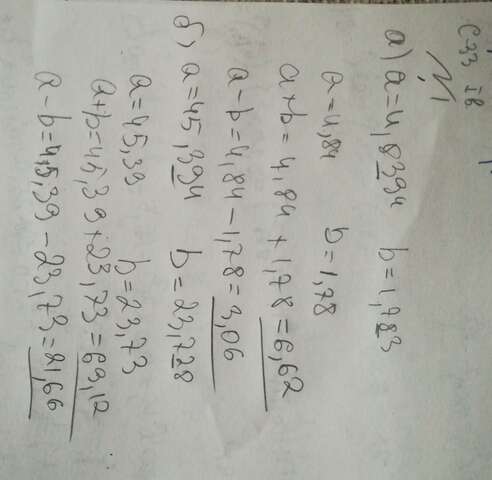 С-33 IB
№1
а) a=4,8394 b=1,783
a=4,84 b=1,78
a+b=4,84+1,78=6,62
a-b=4,84-1,78=3,06
б) a=45,394 b=23,728
a=45,39 b=23,73
a+b=45,39+23,73=69,12
a-b=45,39-23,73=21,66